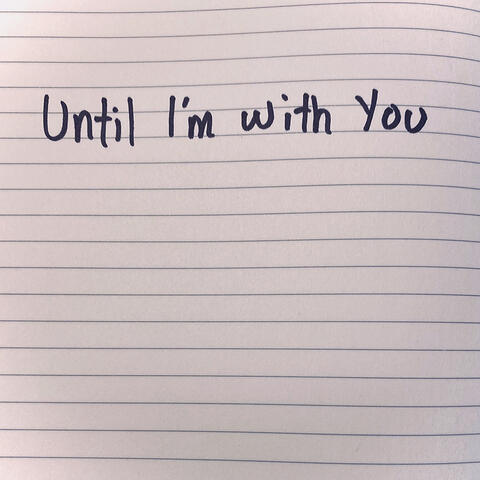 Until I'm with You